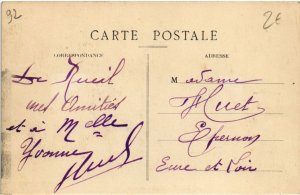 92
2€
CARTE POSTALE
CORRESPONDANCE
ADRESSE
De Rueil
mes Amitiés
et à Mlle
Yvonne
Madame
Huet
Epernon
Eure et Loir